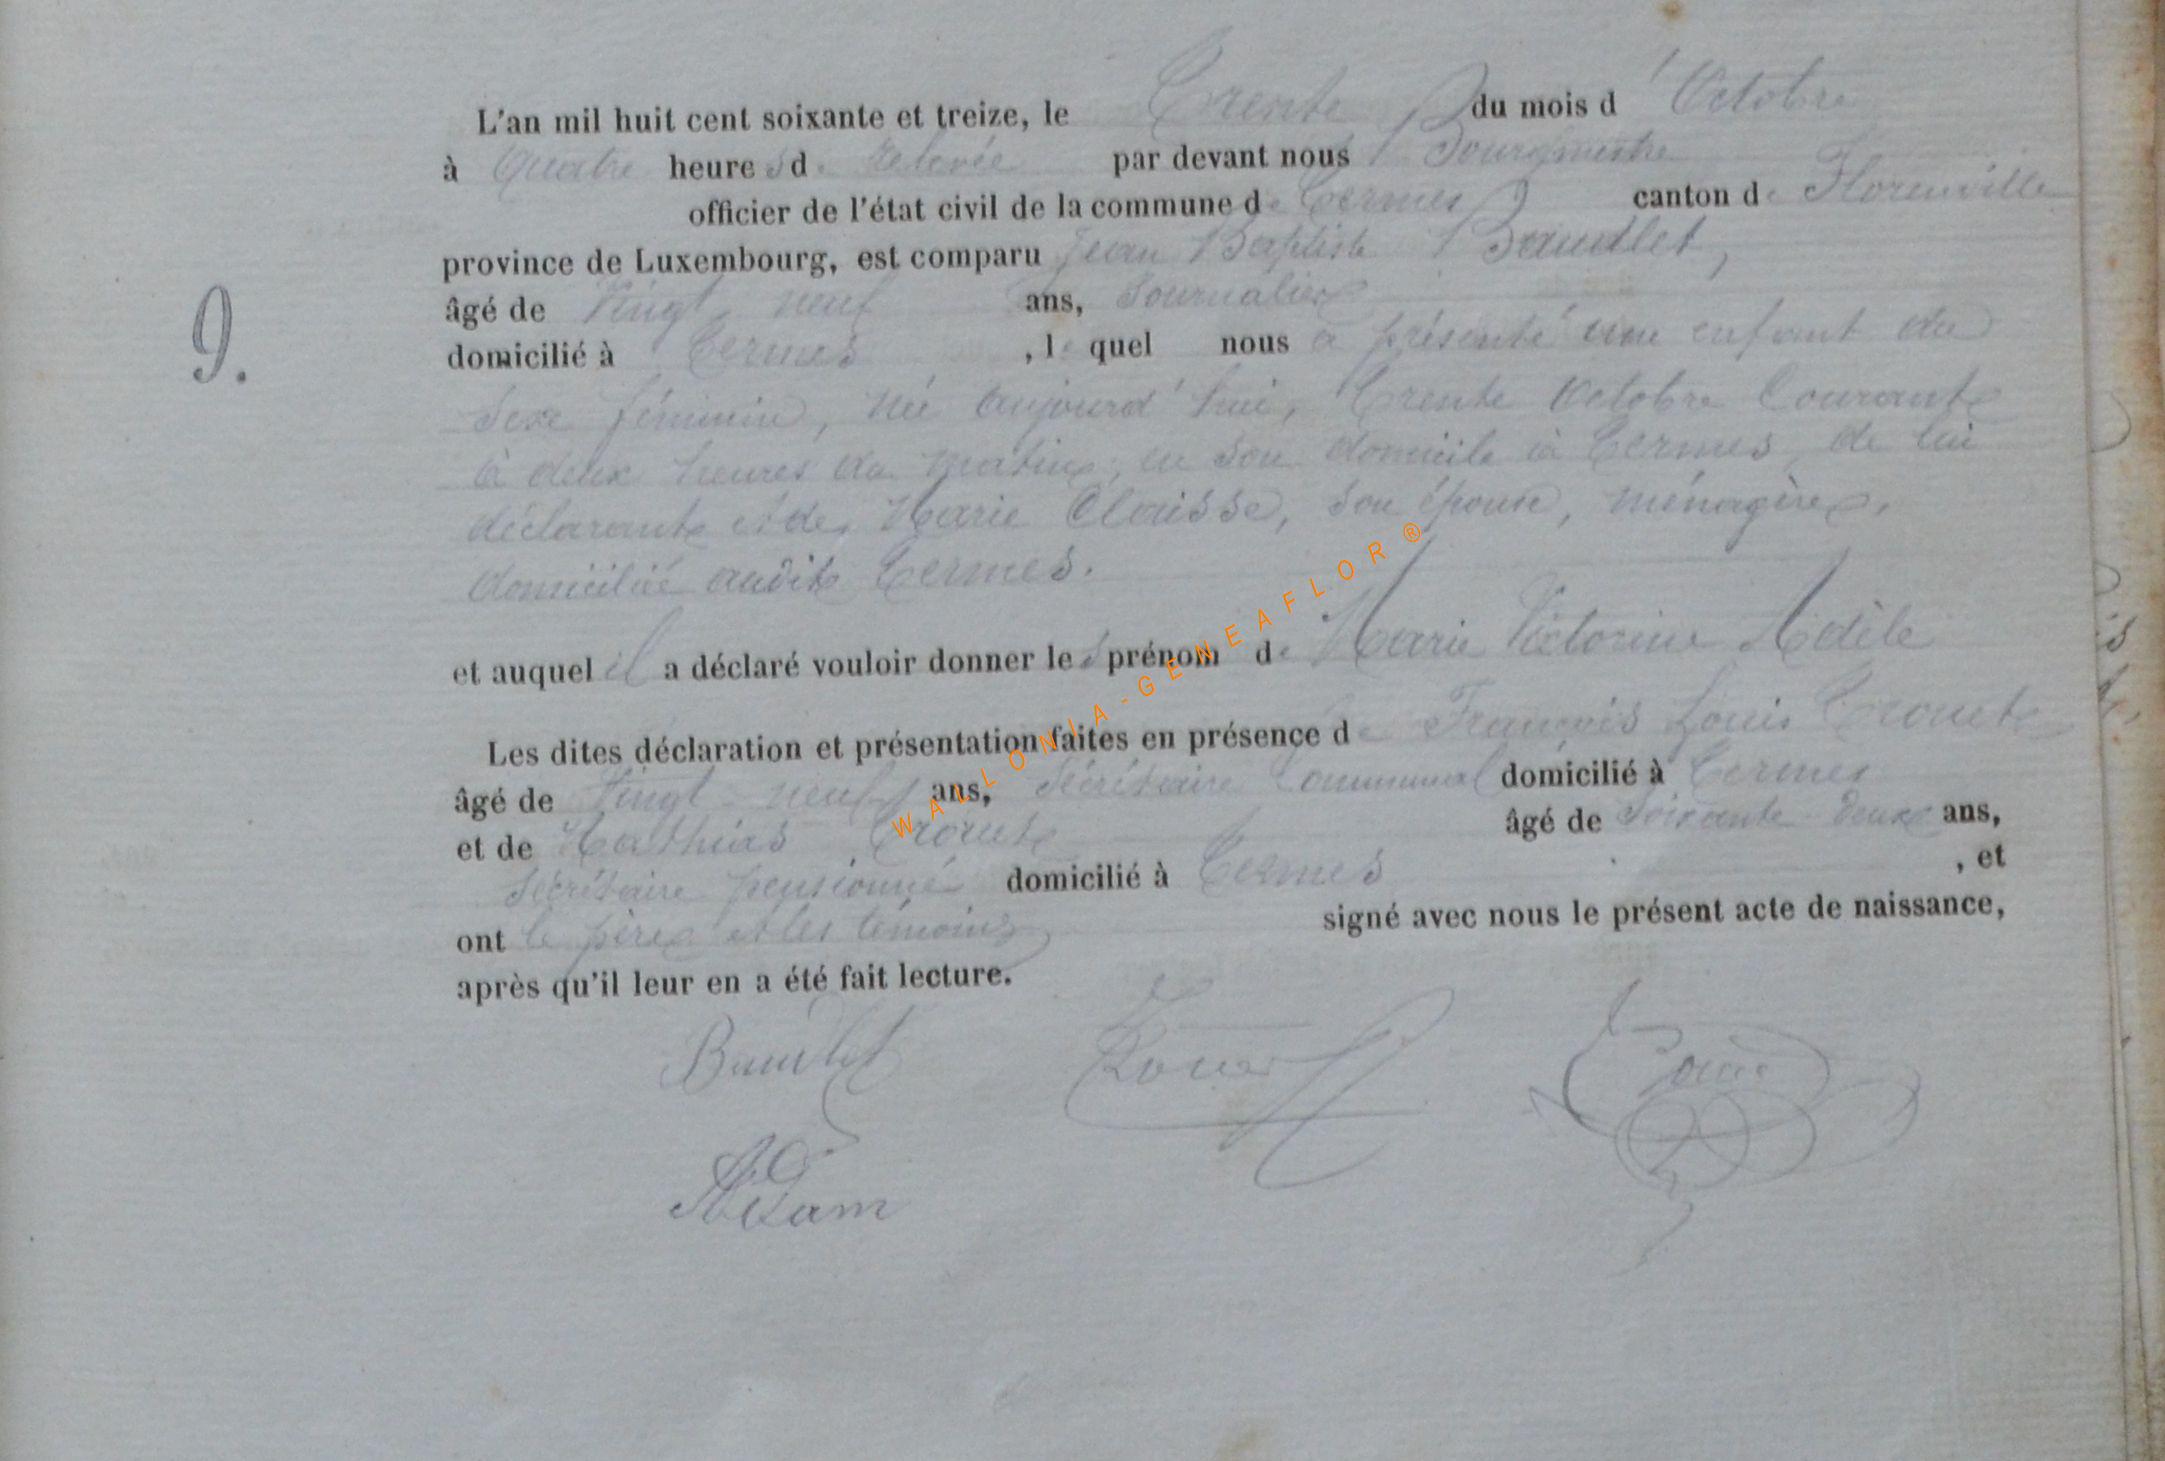 L'an mil huit cent soixante et treize, le Trente du mois d'Octobre
à Quatre heures d. relevée par devant nous Bourgmestre
officier de l'état civil de la commune de Termes canton de Florenville
province de Luxembourg, est comparu Jean Baptiste Baudlet,
âgé de Vingt neuf ans, Journalier
9.
domicilié à Termes, le quel nous a présenté une enfant du
sexe féminin, née aujourd'hui, Trente Octobre Courant
à deux heures du matin, en son domicile à Termes, de lui
déclarant et de, Marie Claisse, son épouse, ménagère,
domiciliée audit Termes.
et auquel il a déclaré vouloir donner les prénom de Marie Victorine Adèle
Les dites déclaration et présentation faites en présence de François Louis
âgé de Vingt neuf ans, Sécrétaire Communal domicilié à Termes
et de Mathias âgé de Soixante deux ans,
Sécrétaire pensionné domicilié à Termes , et
ont le père et les témoins signé avec nous le présent acte de naissance,
après qu'il leur en a été fait lecture.
Baudlet
Adam
WALLONIA-GENEAFLOR®